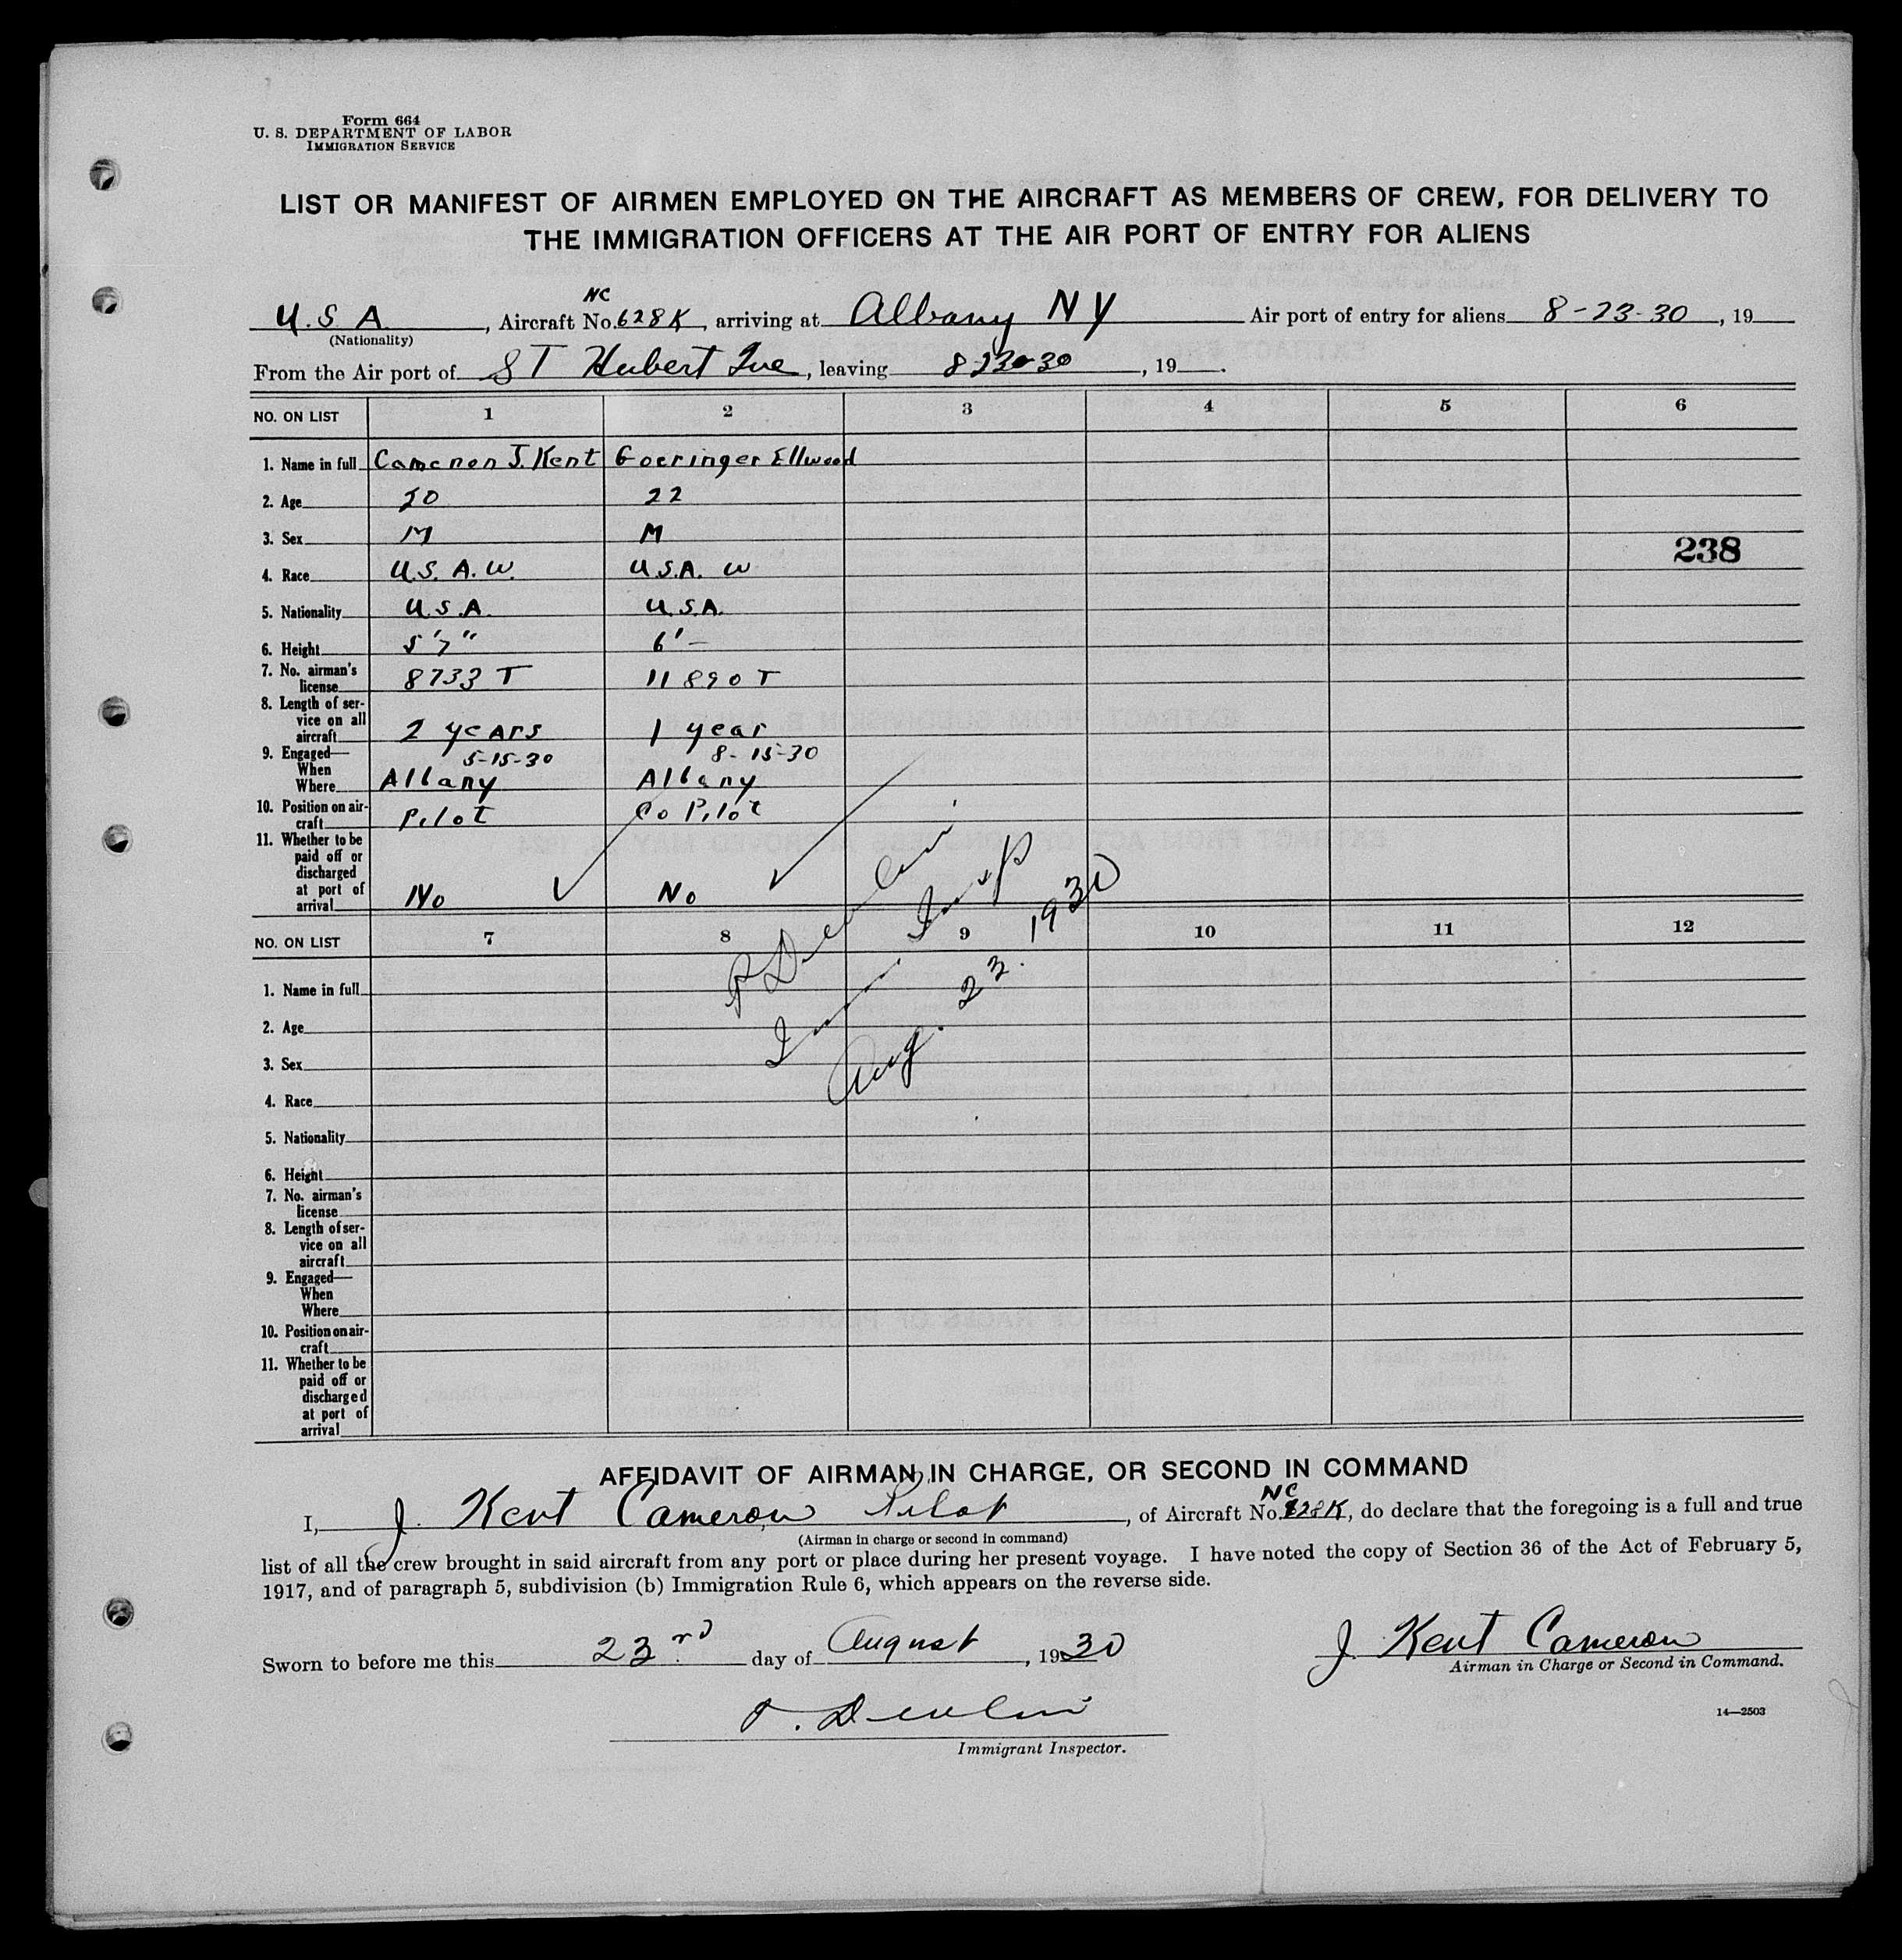 Form 664
U. S. DEPARTMENT OF LABOR
IMMIGRATION SERVICE
LIST OR MANIFEST OF AIRMEN EMPLOYED ON THE AIRCRAFT AS MEMBERS OF CREW, FOR DELIVERY TO
THE IMMIGRATION OFFICERS AT THE AIR PORT OF ENTRY FOR ALIENS
U.S.A., Aircraft No. NC 628K, arriving at Albany NY Air port of entry for aliens 8-23-30, 19
(Nationality)
From the Air port of ST Hubert Que, leaving 8-23-30, 19 .
NO. ON LIST 1 2 3 4 5 6
1. Name in full Cameron J. Kent Goeringer Ellwood
2. Age 22
3. Sex M M
238
4. Race U.S.A. W. U.S.A. W
5. Nationality U.S.A. U.S.A.
6. Height 5'7" 6'—
7. No. airman's
license 8733 T 11890 T
8. Length of ser-
vice on all
aircraft 2 years 1 year
9. Engaged—
When 5-15-30 8-15-30
Where Albany Albany
10. Position on air-
craft Pilot Co Pilot
11. Whether to be
paid off or
discharged
at port of
arrival No No
P Devlin
Imm. Insp
Aug. 23. 1930
NO. ON LIST 7 8 9 10 11 12
1. Name in full
2. Age
3. Sex
4. Race
5. Nationality
6. Height
7. No. airman's
license
8. Length of ser-
vice on all
aircraft
9. Engaged—
When
Where
10. Position on air-
craft
11. Whether to be
paid off or
discharged
at port of
arrival
AFFIDAVIT OF AIRMAN IN CHARGE, OR SECOND IN COMMAND
I, J. Kent Cameron Pilot, of Aircraft No. NC 628K, do declare that the foregoing is a full and true
(Airman in charge or second in command)
list of all the crew brought in said aircraft from any port or place during her present voyage. I have noted the copy of Section 36 of the Act of February 5,
1917, and of paragraph 5, subdivision (b) Immigration Rule 6, which appears on the reverse side.
Sworn to before me this 23rd day of August, 1930
J. Kent Cameron
Airman in Charge or Second in Command.
P. Devlin
14—2503
Immigrant Inspector.